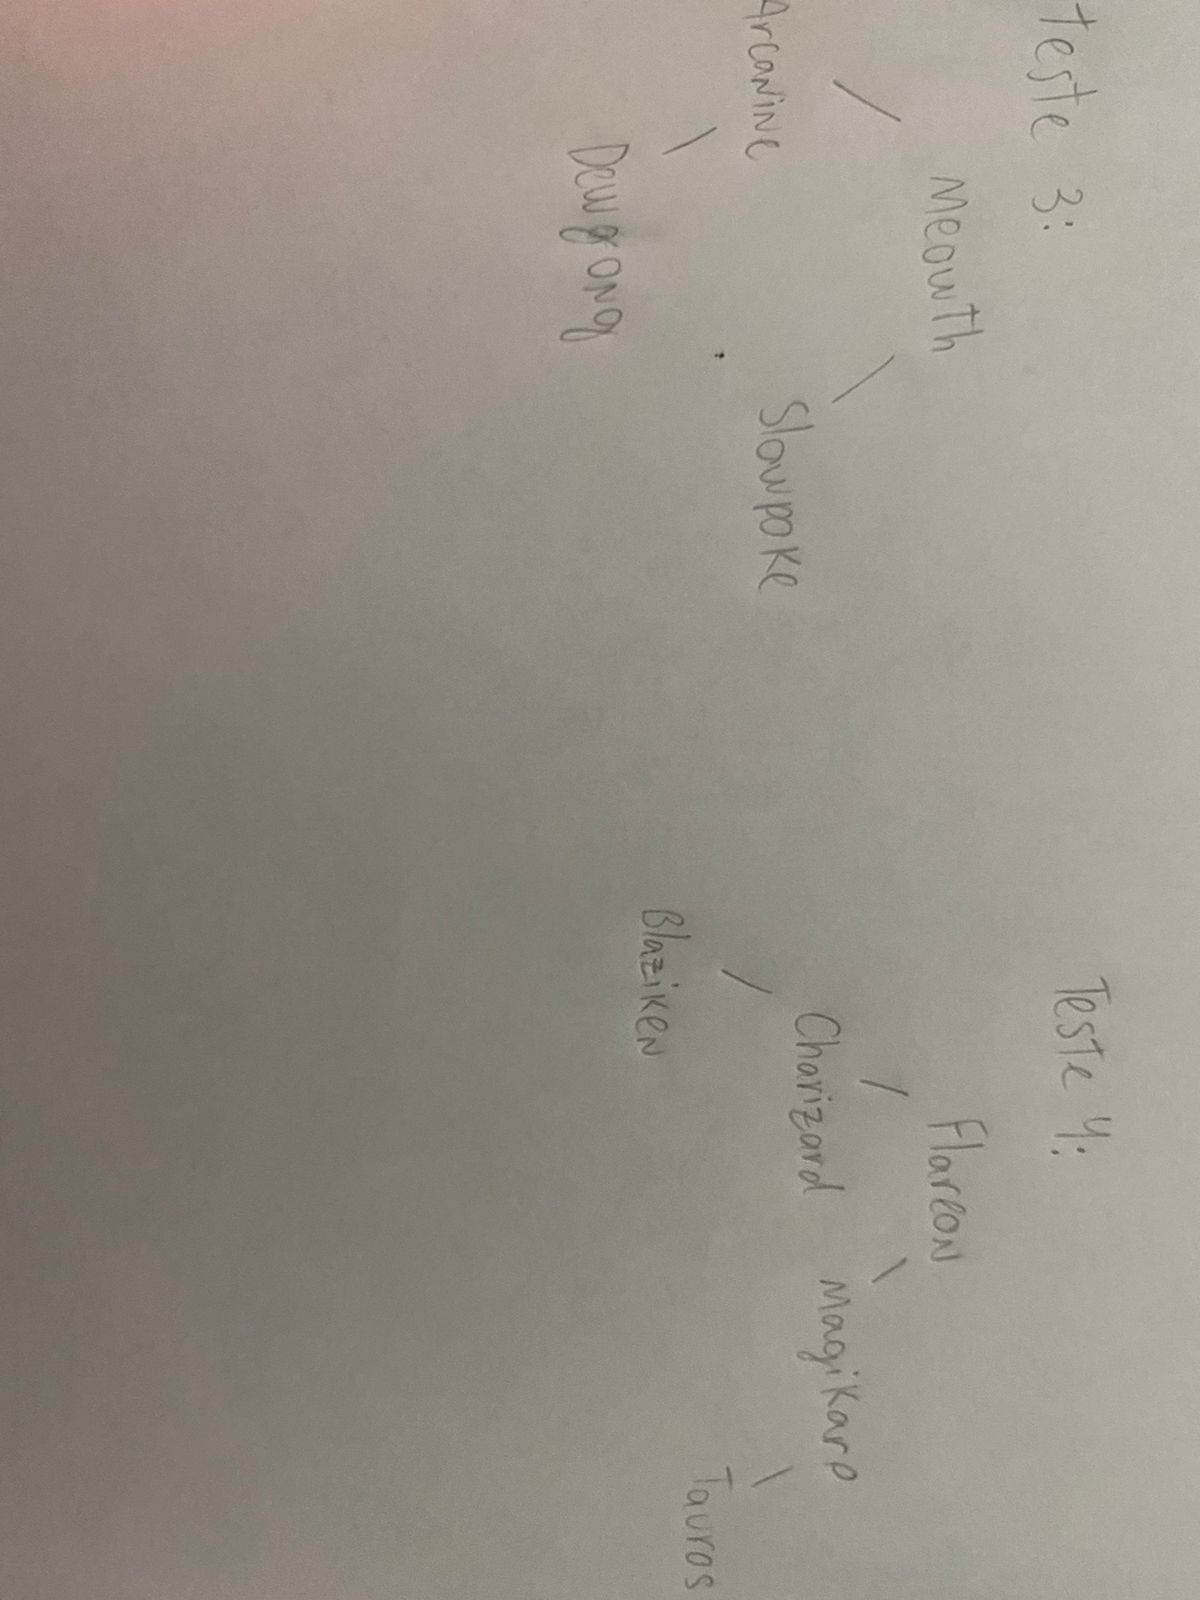 Teste 3:
Meowth
Arcanine
Slowpoke
Dewgong
Teste 4:
Flareon
Charizard
Magikarp
Blaziken
Tauros